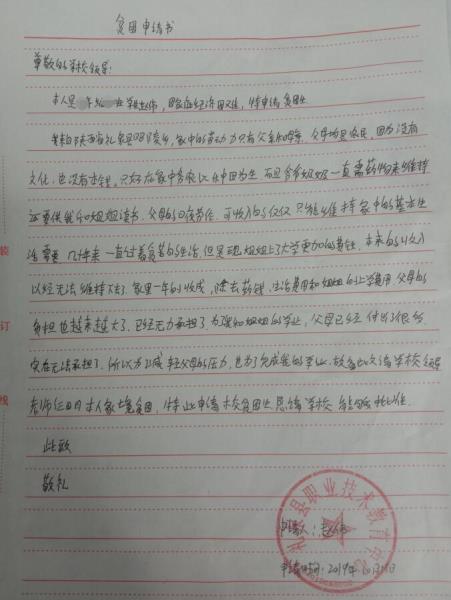 贫困申请书
尊敬的学校领导:
本人是 年 班学生 ,因家庭经济困难,特申请贫困生
我来自陕西省礼泉县 ,家中的劳动力只有父亲和母亲,父母均是农民,因为没有
文化,也没有本钱,只好在家中务农以 中因为生 而且爷爷奶奶一直需药物来维持
还要供我和姐姐读书,父母的 负责任,可收入的仅仅 只能维持家中的基本生
活需要,几十年来一直过着贫苦的生活,但是现姐姐上了大学更加的费钱,本来的收入
以经无法维持下去了,家里一年的收成,除去药钱,生活费用和姐姐的上学费用 父母的
负担也越来越大了,已经无力承担了,为了我和姐姐的学业,父母已经付出了很多,
实在无法承担了,所以为了减轻父母的压力,也为了完成我的学业,故 请学校领导
老师 本人家境贫困,特此申请本校贫困生 恳请学校能够批准.
此致
敬礼
装
订
线
县职业技术教育中心
申请人:赵
申请时间:2019年10月